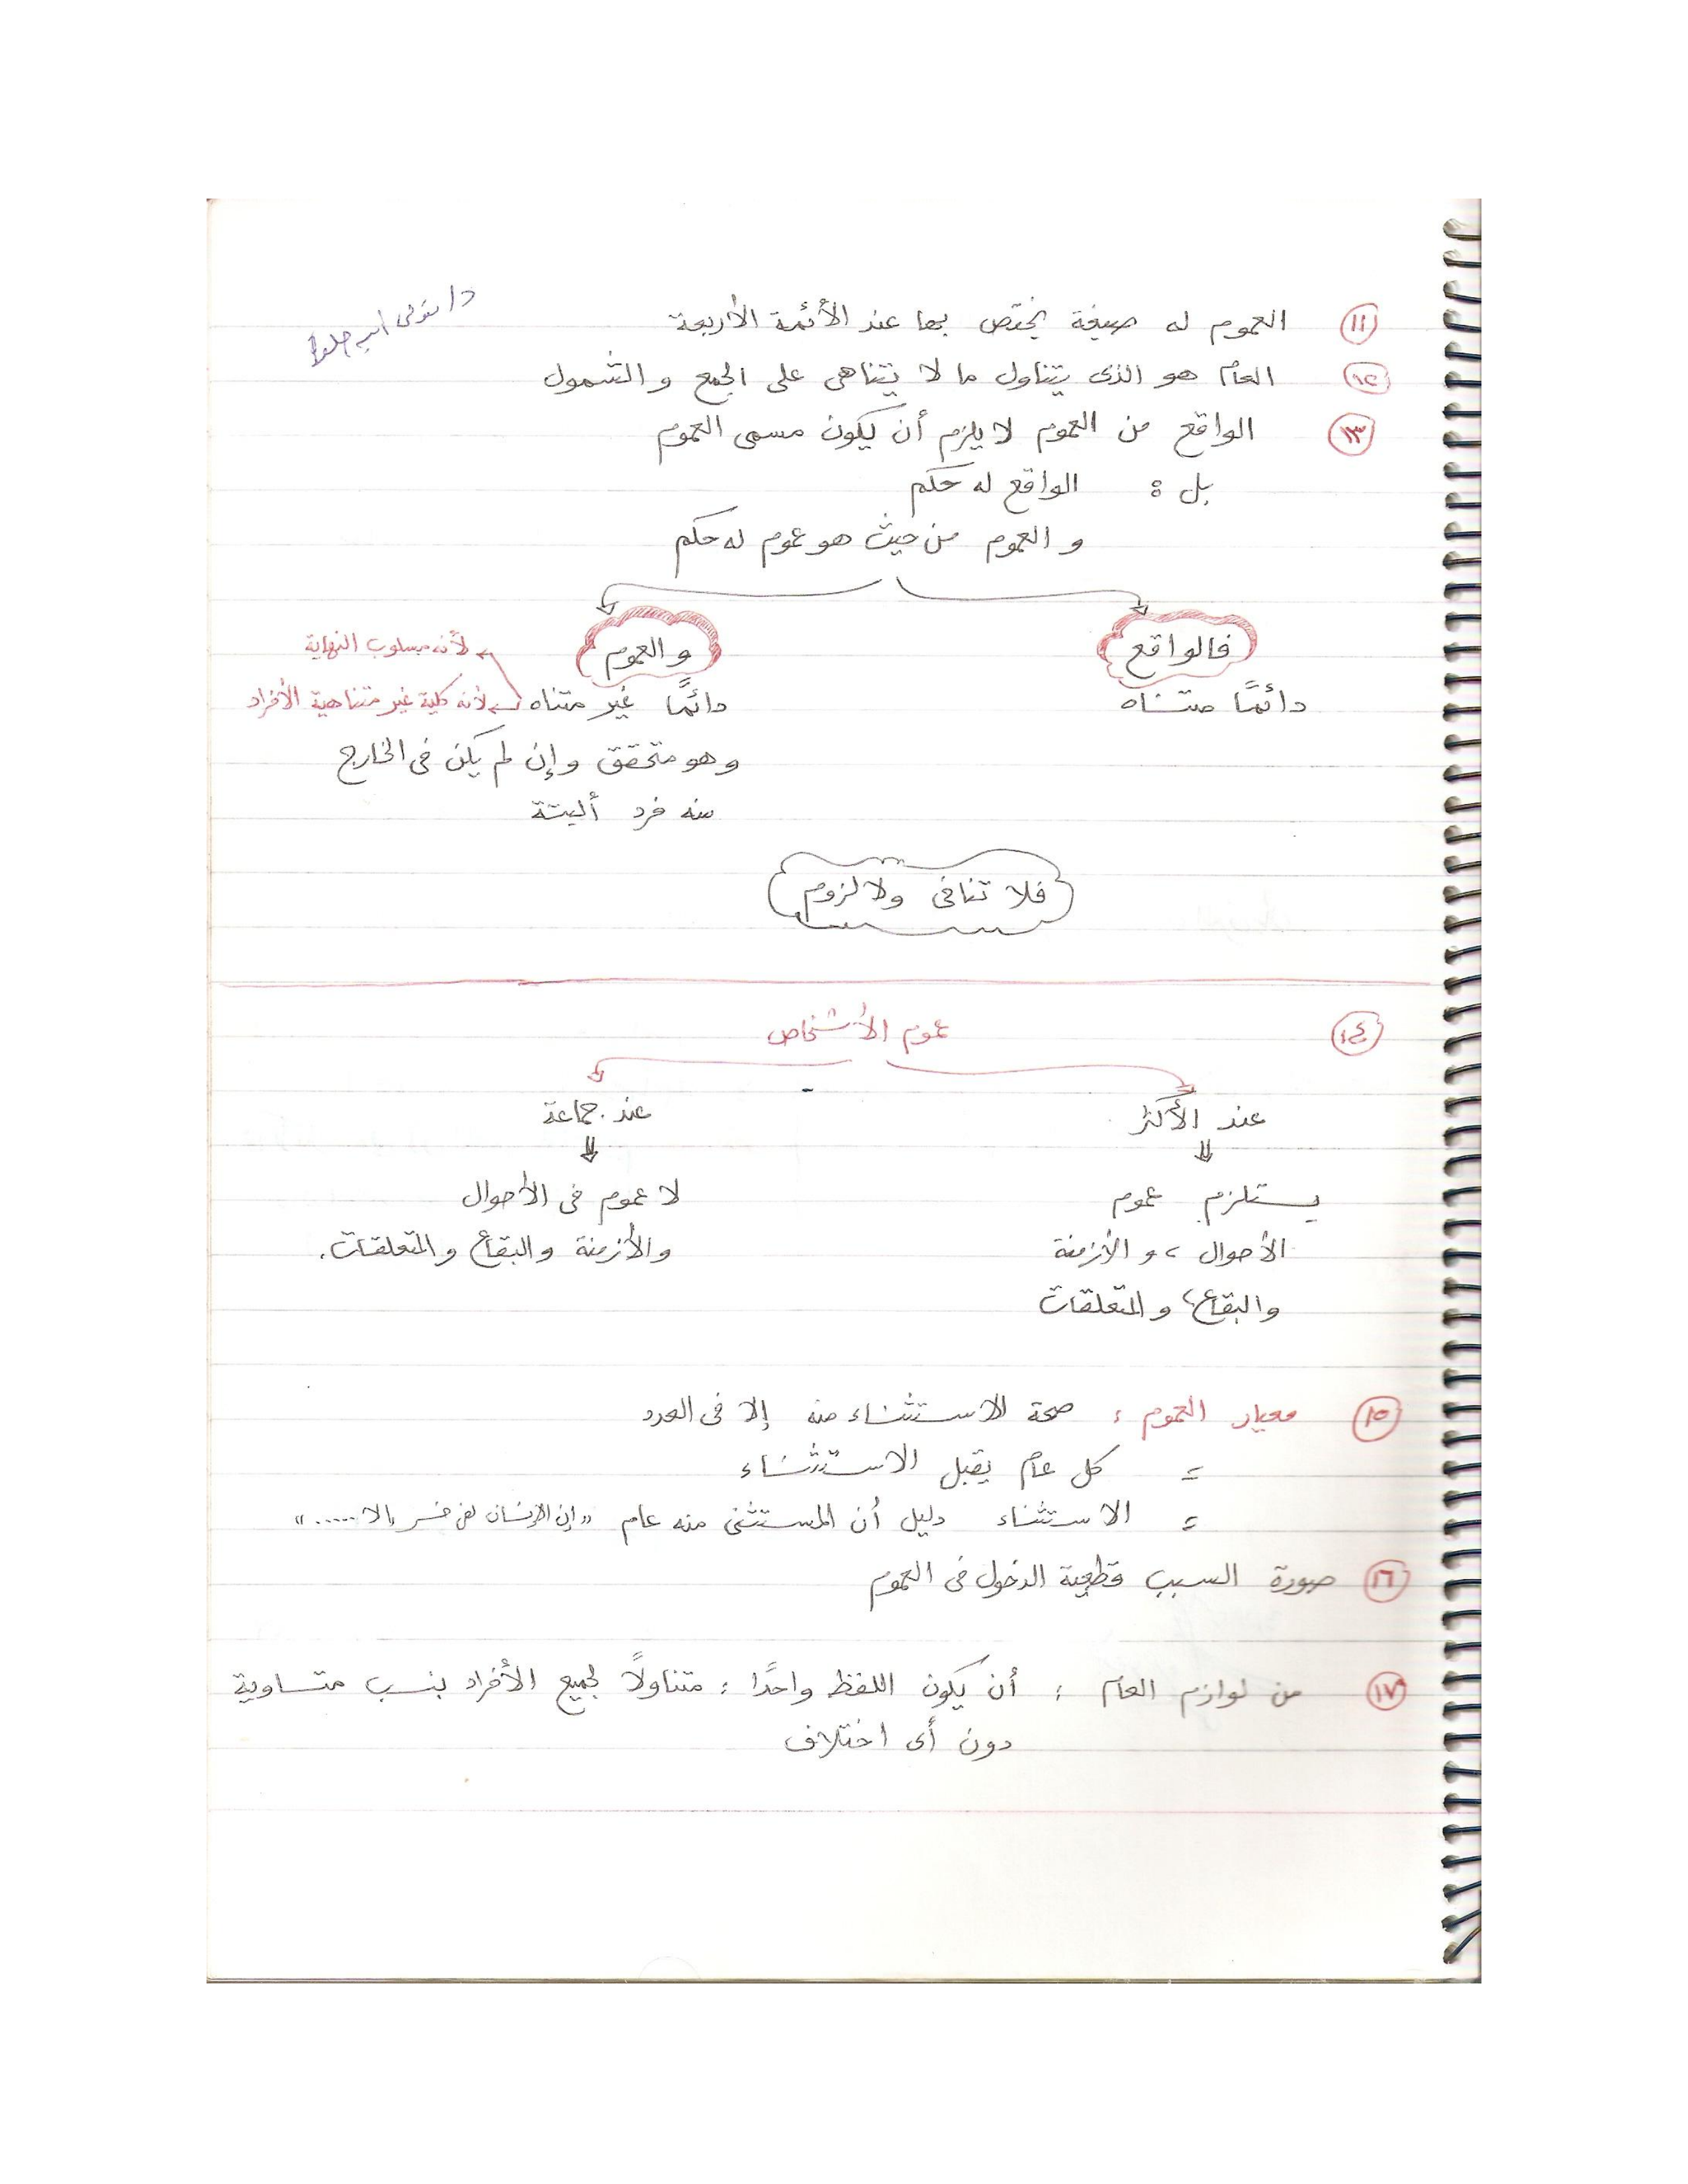 ١١ العموم له صيغة يختص بها عند الأئمة الأربعة
١٢ العام هو الذى يتناول ما لا يتناهى على الجمع والشمول
١٣ الواقع من العموم لا يلزم أن يكون مسمى العموم
بل : الواقع له حكم
و العموم من حيث هو عموم له حكم
فالواقع
دائمًا متناه
و العموم
لأنه مسلوب النهاية
دائمًا غير متناه لأنه كلية غير متناهية الأفراد
وهو متحقق وإن لم يكن فى الخارج
منه فرد ألبتة
فلا تنافى ولا لزوم
١٤ عموم الأشخاص
عند الأكثر
يستلزم عموم
الأحوال ، و الأزمنة
والبقاع ، و المتعلقات
عند جماعة
لا عموم فى الأحوال
والأزمنة والبقاع والمتعلقات .
١٥ معيار العموم : صحة الاستثناء منه إلا فى العدد
= كل عام يقبل الاستثناء
= الاستثناء دليل أن المستثنى منه عام "إن الإنسان لفى خسر إلا ....."
١٦ صورة السبب قطعية الدخول فى العموم
١٧ من لوازم العام : أن يكون اللفظ واحدًا : متناولًا لجميع الأفراد بنسب متساوية
دون أى اختلاف